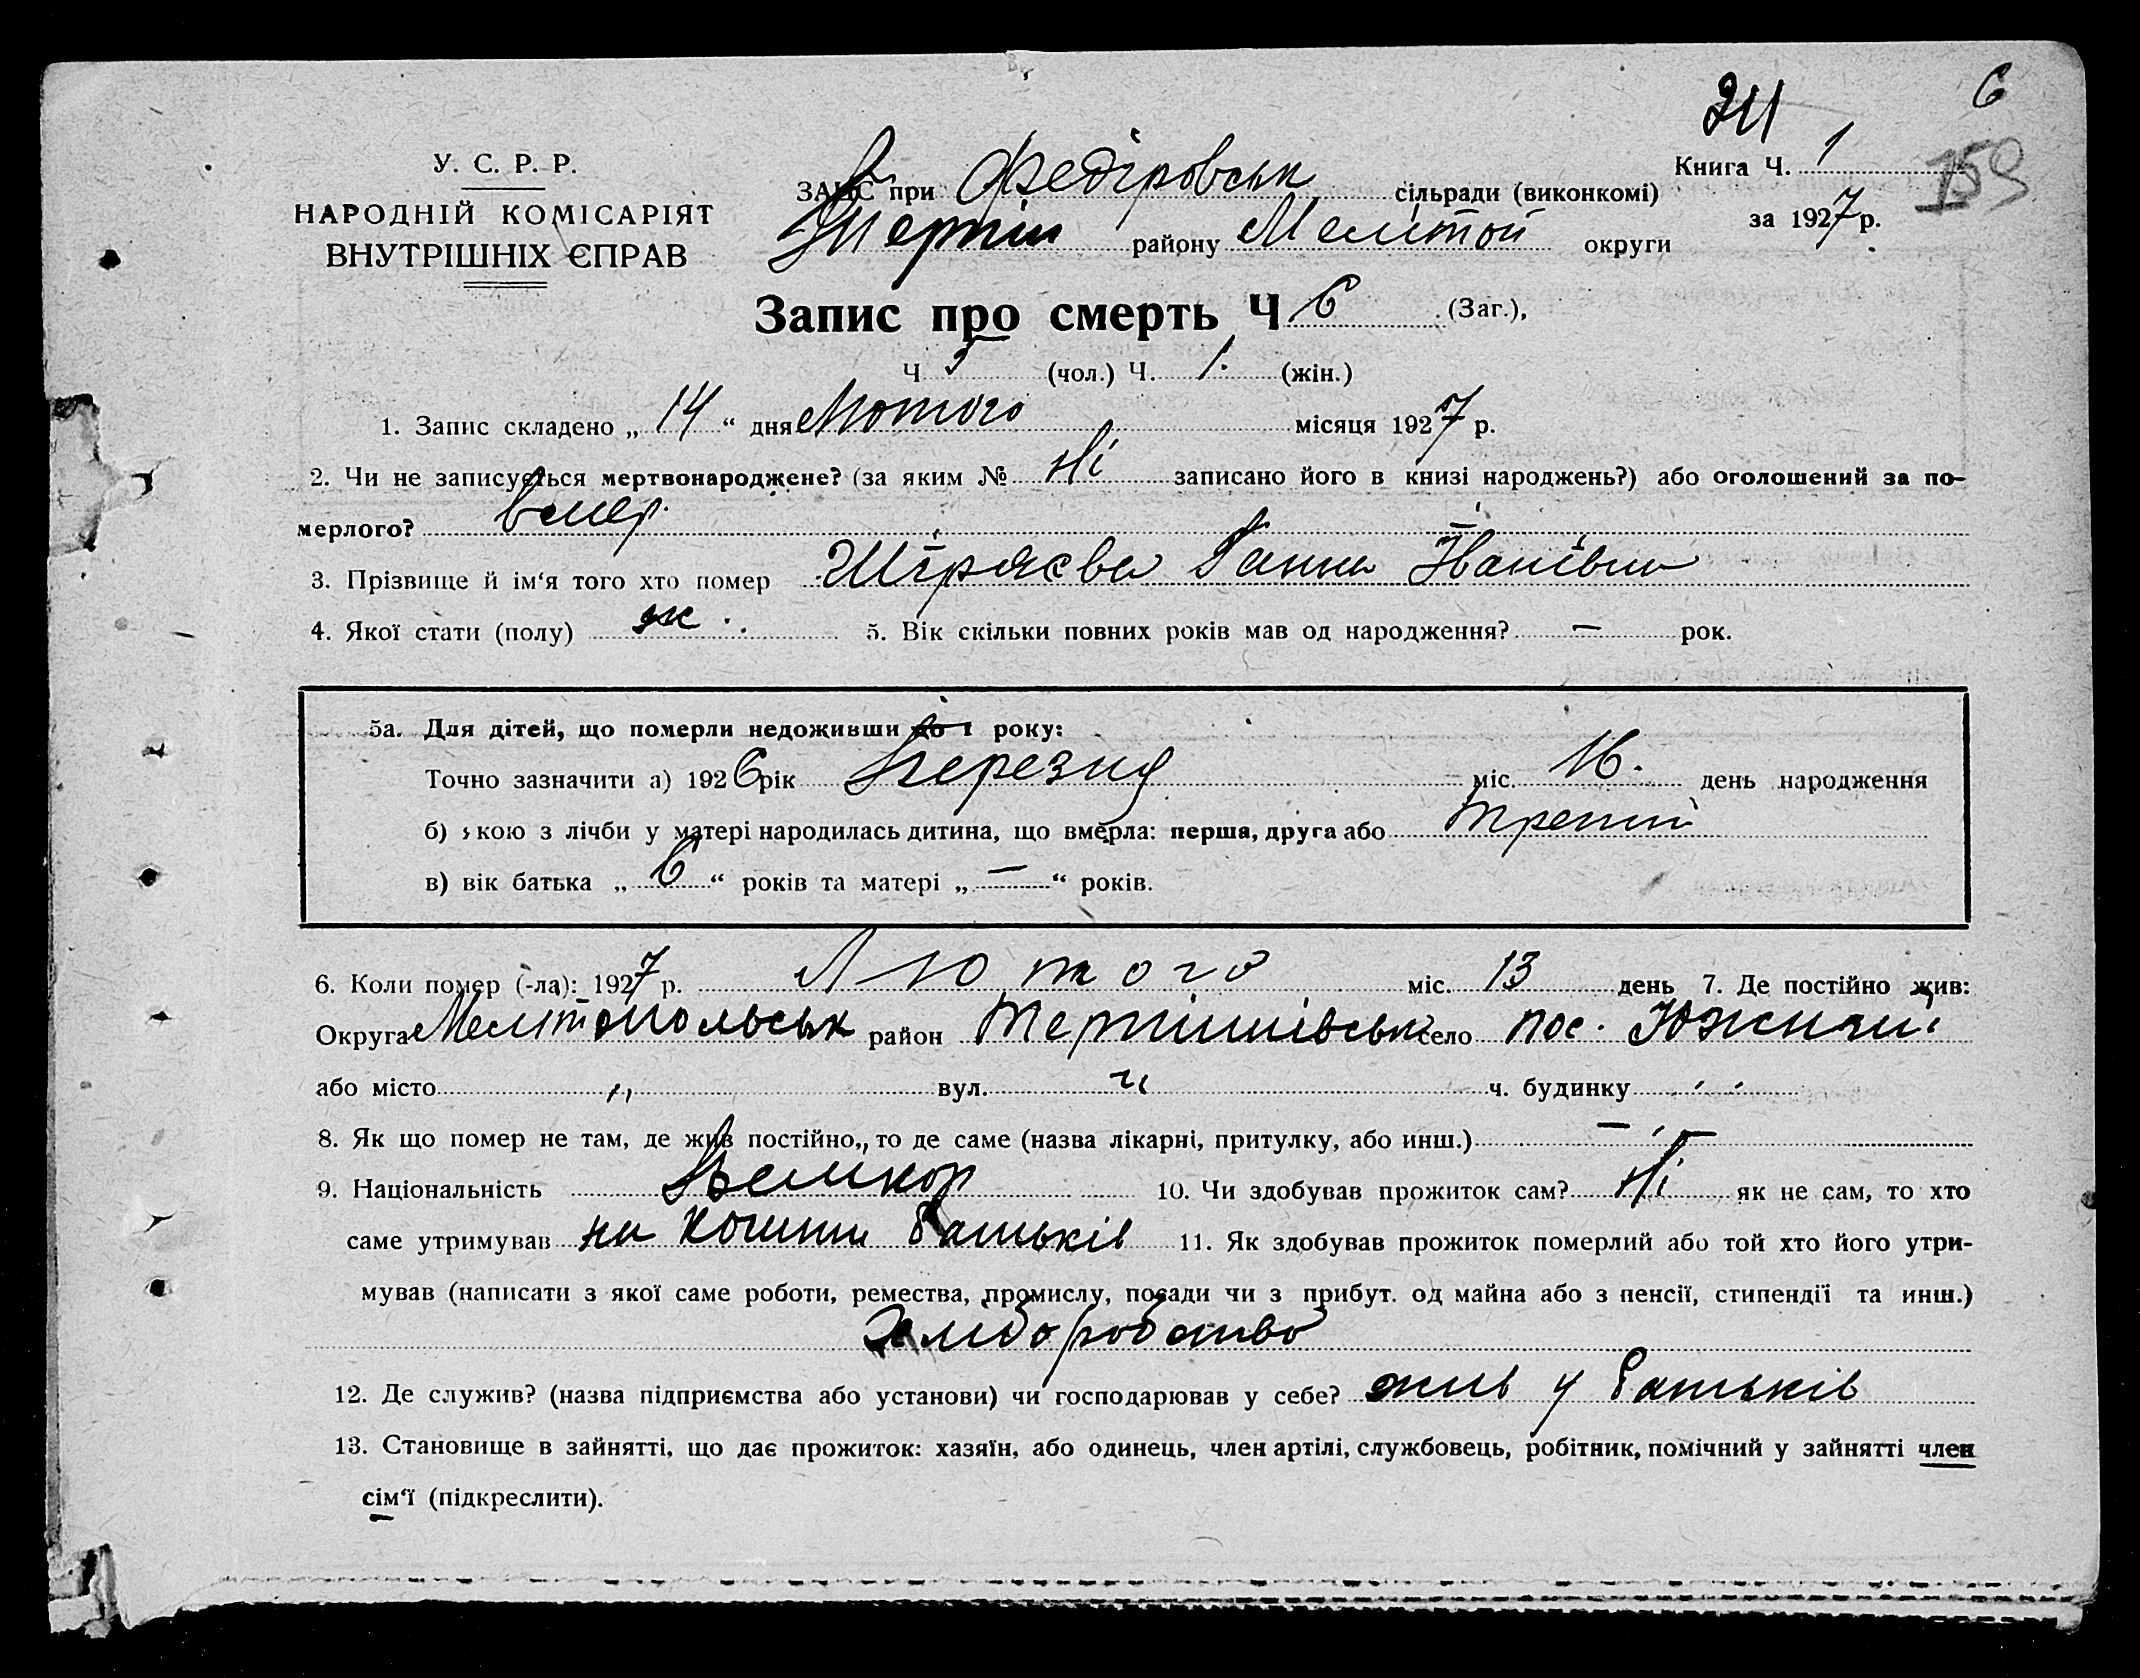 24 6
Книга Ч. 1 159
за 1927 р.
У. С. Р. Р.
НАРОДНІЙ КОМІСАРІЯТ
ВНУТРІШНІХ ЄПРАВ
ЗАЦС при Федіровськ сільради (виконкомі)
району Мелітоп округи
Запис про смерть Ч 6 (Заг.),
Ч 5 (чол.) Ч. 1. (жін.)
1. Запис складено „ 14 “ дня Лютого місяця 1927 р.
2. Чи не записується мертвонароджене? (за яким № Ні записано його в книзі народжень?) або оголошений за по-
мерлого? вмер.
3. Прізвище й ім‘я того хто помер Шіряєва Ганна Іванівна
4. Якої стати (полу) ж 5. Вік скільки повних років мав од народження? — рок.
5а. Для дітей, що померли недоживши до 1 року:
Точно зазначити а) 1926 рік Березня міс. 16. день народження
б) якою з лічби у матері народилась дитина, що вмерла: перша, друга або третій
в) вік батька „ 6 “ років та матері „ — “ років.
6. Коли помер (-ла): 1927 р. Лютого міс. 13 день 7. Де постійно жив:
Округа Мелітопольськ район Терпіннівськ село пос. Южный
або місто „ вул. „ ч. будинку „
8. Як що помер не там, де жив постійно, то де саме (назва лікарні, притулку, або инш.) —„—
9. Національність Великор 10. Чи здобував прожиток сам? Ні як не сам, то хто
саме утримував на кошти батьків 11. Як здобував прожиток померлий або той хто його утри-
мував (написати з якої саме роботи, ремества, промислу, посади чи з прибут. од майна або з пенсії, стипендії та инш.)
Хліборобство
12. Де служив? (назва підприємства або установи) чи господарював у себе? жив у батьків
13. Становище в зайнятті, що дає прожиток: хазяїн, або одинець, член артілі, службовець, робітник, помічний у зайнятті член
сім‘ї (підкреслити).